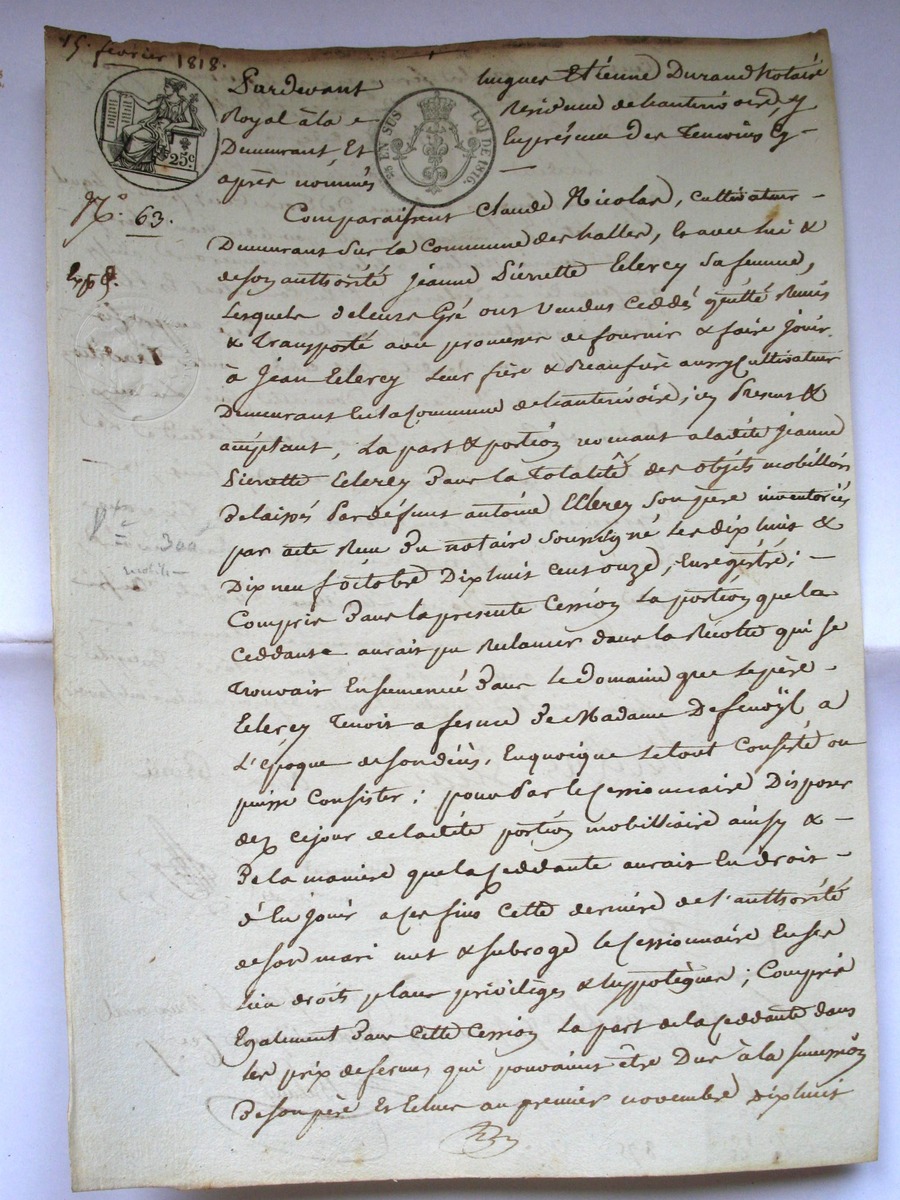 15. fevrier 1818.
Pardevant hugues Etiénne Durand Notaire
Royal à la Residence de chantemoire, y
25 c.
EN SUS
LOI DE 1816.
Demeurant, Et En présence des Temoins Cy-
après nommés
N.° 63.
Comparaissent Claude Nicolas, cultivateur
Demeurant sur la Commune des halles, & avec lui &
Exp.
de son authórité Jéanne Piérrette Clercy sa femme,
Lesquels de leurs Gré ont Vendus Ceddés quitté Remis
& Transporté avec promesse de fournir & faire Jouir
à Jean Clercy leur frère & Beaufrère aussy Cultivateur
Demeurant En la Commune de ; icy Présent &
acceptant, La part & portion revenant à ladite Jéanne
Piérrette Clercy Dans la Totalité des objets mobilliers
Delaissés Par défunt antoine Clercy son père inventoriés
par acte Reçu Du notaire Soussigné Les dix huit &
300
Dix neuf octobre Dix huit cent onze, Enrégistré;
Compris Dans la présente Cession La portion que la
Ceddante aurait pu Reclamer dans la Récolte qui se
Trouvait Ensemencée Dans le Domaine que le père
Clercy Tenoit a ferme De Madame Defenoÿl a
L'époque de son décès, En quoique le tout Consiste ou
puisse Consister; pour Par le Cessionnaire Disposer
dez ce jour de ladite portion mobilliaire ainsy &
De la manière que la Ceddante aurait Eu droit
d'En jouir a ces fins cette dernière de l'authórité
de son mari met & subroge le Cessionnaire En ses
Lieu droits place priviléges & hyppotèques; Compris
Egalement Dans Cette Cession La part de la Ceddante dans
les prix de fermes qui pouvaient être Dus à la succession
De son père Et Echus au premier novembre Dix huit